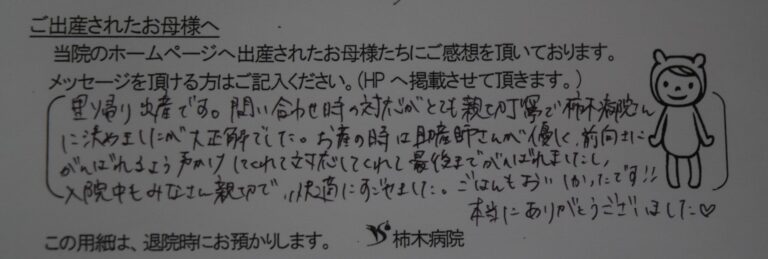 ご出産されたお母様へ
当院のホームページへ出産されたお母様たちにご感想を頂いております。
メッセージを頂ける方はご記入ください。(HPへ掲載させて頂きます。)
里り帰り出産です。問い合わせ時の対応がとても親切丁寧で柿木病院さん
に決めましたが大正解でした。お産の時は助産師さんが優しく、前向きに
がんばれるよう声かけしてくれて対応してくれて最後までがんばれましたし、
入院中もみなさん親切で、快適にすごせました。ごはんもおいしかったです!!
本当にありがとうございました♡
この用紙は、退院時にお預かりします。 柿木病院